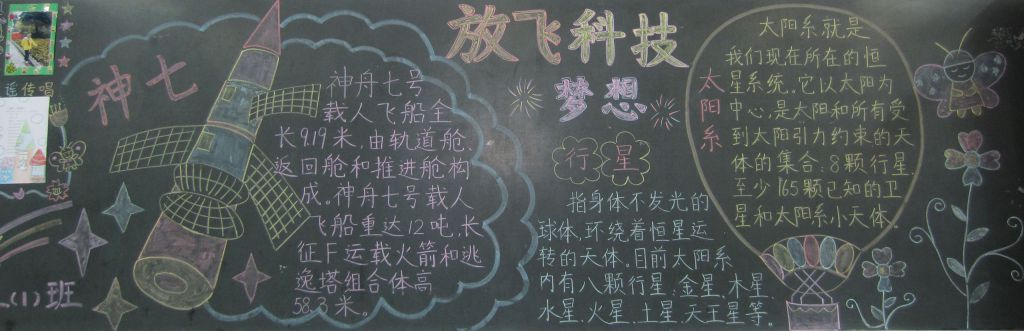 谣传唱
(1)班
神七
神舟七号
载人飞船全
长9.19米,由轨道舱、
返回舱和推进舱构
成。神舟七号载人
飞船重达12吨,长
征F运载火箭和逃
逸塔组合体高
58.3米。
放飞科技
梦想
行星
指身体不发光的
球体,环绕着恒星运
转的天体。目前太阳系
内有八颗行星:金星、木星、
水星、火星、土星、天王星等。
太阳系
太阳系就是
我们现在所在的恒
星系统。它以太阳为
中心,是太阳和所有受
到太阳引力约束的天
体的集合:8颗行星、
至少165颗已知的卫
星和太阳系小天体。